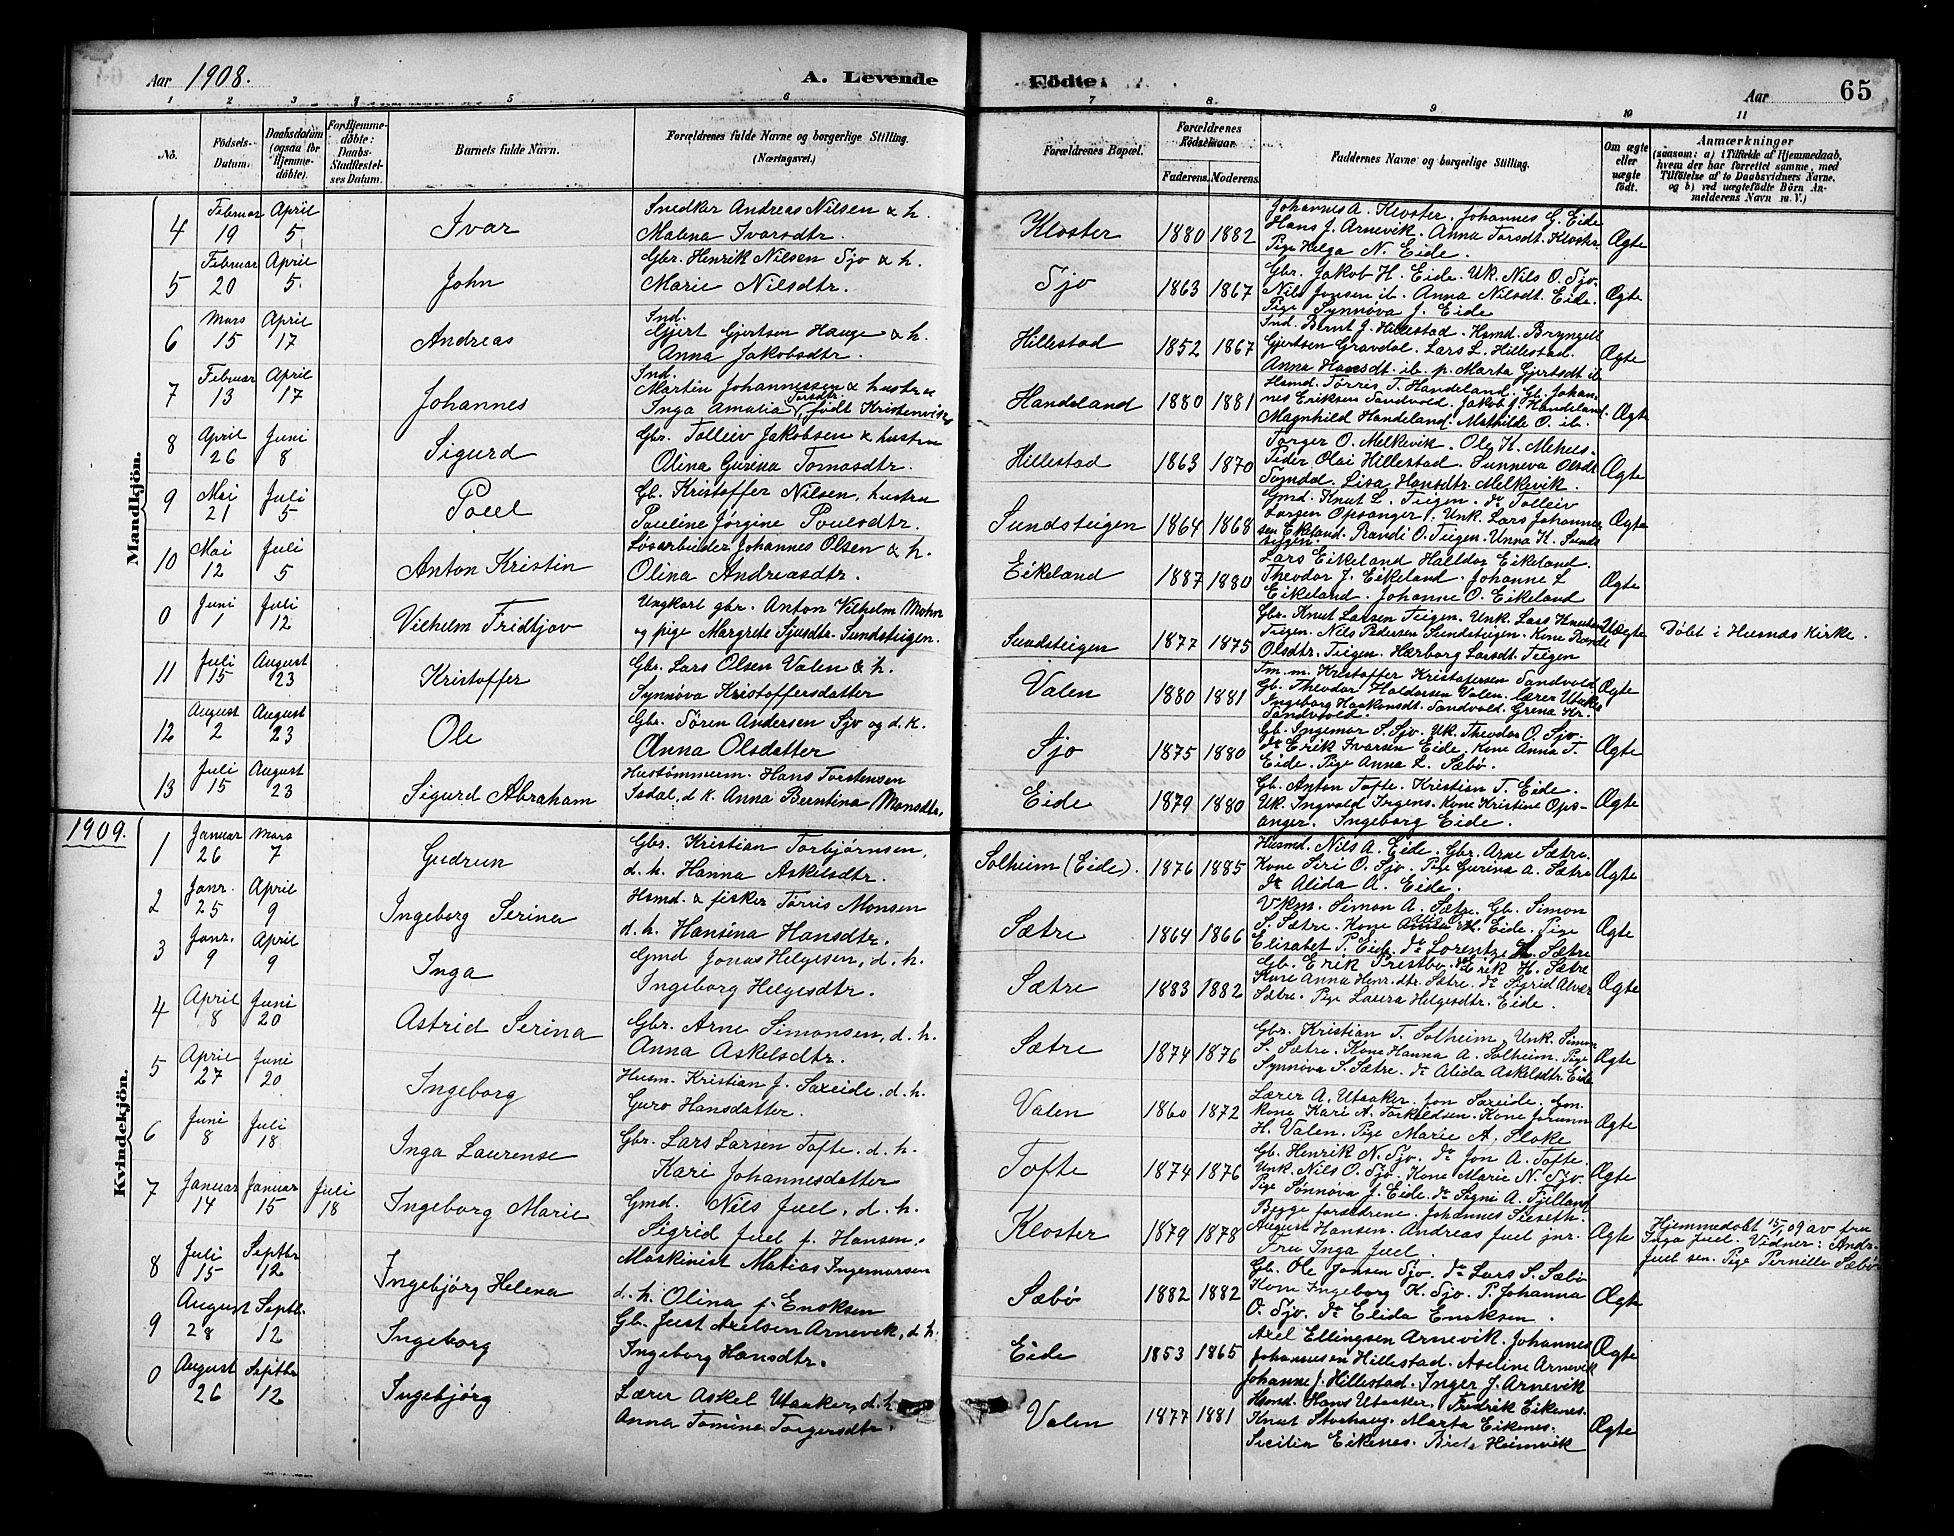 Aar 1908.
A. Levende
Födte.
Aar
65
1 2 3 4 5 6 7 8 9 10 11
No.
Födsels-
Datum.
Daabsdatum
(ogsaa for
Hjemme-
döbte).
For Hjemme-
döbte:
Daabs-
Stadfæstel-
ses Datum.
Barnets fulde Navn.
Forældrenes fulde Navne og borgerlige Stilling.
(Næringsvei.)
Forældrenes Bopæl.
Forældrenes
Födselsaar.
Faderens. Moderens.
Faddernes Navne og borgerlige Stilling.
Om ægte
eller
uægte
födt.
Anmærkninger
(saasom: a) i Tilfælde af Hjemmedaab,
hvem der har forrettet samme, med
Tilföielse af to Daabsvidners Navne.
og b) ved uægtefödte Börn An-
melderens Navn m. V.)
Mandkjön.
4 Februar 19 April 5 Ivar
Snedker Andreas Nilsen & h.
Malena Ivarsdtr.
Kloster 1880 1882
Johannes A. Kloster. Johannes G. Eide
Hans J. Arnevik. Anna Torsdt. Kloster.
Pige Helga N. Eide.
Ægte
5 Februar 20 April 5. John
Gbr. Henrik Nilsen Sjo & h.
Marie Nilsdtr.
Sjo 1863 1867
Gbr. Jakob H. Eide. Uk. Nils O. Sjo.
Nils Jonsen ib. Anna Nilsdt. Eide.
Pige Synnøva J. Eide
Ægte
6 Mars 15 April 17 Andreas
Ind.
Gjert Gjertsen Hauge & h.
Anna Jakobsdtr.
Hillestad 1852 1867
Ind. Bernt J. Hillestad. Hsmd. Bryngell
Gjertsen Gravdal. Lars L. Hillestad.
Anna Hansdt. ib. p. Marta Gjertsdt ib
Ægte
7 Februar 13 April 17 Johannes
Ind.
Martin Johannessen & hustru
Inga Amalia Torsdtr. født Kristenvik
Handeland 1880 1881
Hsmd. Tørris T. Handeland. Gb. Johan-
nes Eriksen Sandvold. Jakob J. Handeland.
Magnhild Handeland. Mathilde O. ib.
Ægte
8 April 26 Juni 8 Sigurd
Gbr. Tolleiv Jakobsen & hustru
Olina Gurina Tomasdtr.
Hillestad 1863 1870
Torger O. Melkevik. Ole K. Mehus.
Peder Olai Hillestad. Sunneva Olsdt
Sogndal. Lisa Hansdtr. Melkevik.
Ægte
9 Mai 21 Juli 5 Poul
Gb. Kristoffer Nilsen, hustru
Pauline Jørgine Poulsdtr.
Sundsteigen 1864 1868
Gmd. Knut L. Teigen. do Tolleiv
Larsen Opsanger. Unk. Lars Johannes
sen Eikeland. Randi O. Teigen. Unna K. Sunds
teigen.
Ægte
10 Mai 12 Juli 5 Anton Kristin
Løsarbeider Johannes Olsen & h.
Olina Andreasdtr.
Eikeland 1887 1880
Lars Eikeland Haldor Eikeland.
Theodor J. Eikeland. Johanne L
Eikeland. Johanne O. Eikeland
Ægte
0 Juni 1 Juli 12 Vilhelm Fridtjov
Ungkarl gbr. Anton Vilhelm Mohn
og pige Margrete Sjusdtr. Sundsteigen.
Sundsteigen 1877 1875
Gbr. Knut Larsen Teigen. Unk. Lars Knutsen
Teigen. Nils Pedersen Sundsteigen. Kone Randi
Olsdtr. Teigen. Hærborg Larsdt. Teigen
Uægte
Døbt i Husnæs Kirke.
11 Juli 15 August 23 Kristoffer
Gbr. Lars Olsen Valen & h.
Synnøva Kristoffersdatter
Valen 1880 1881
Tm. m. Kristoffer Kristofersen Sandvold
Gb. Theodor Haldorsen Valen. Lærer Utaaker
Ingeborg Haakonsdt. Sandvold. Grena Kr.
Sandvold.
Ægte
12 August 2 August 23 Ole
Gbr. Søren Andersen Sjo og d. k.
Anna Olsdatter
Sjo 1875 1880
Gb. Ingemar S. Sjo. Uk. Theodor O. Sjo.
do Erik Ivarsen Eide. Kone Anna T.
Eide. Pige Anna L. Sæbø.
Ægte
13 Juli 15 August 23 Sigurd Abraham
Hustømmerm. Hans Torstensen
Isdal, d. k. Anna Berntina Monsdtr.
Eide 1879 1880
Gb. Anton Tofte. Kristian T. Eide.
Uk. Ingvald Jrgens. Kone Kristine Ops-
anger. Ingeborg Eide.
Ægte
1909.
Kvindekjön.
1 Januar 26 Mars 7 Gudrun
Gbr. Kristian Torbjørnsen,
d. h. Hanna Askelsdtr.
Solheim (Eide). 1876 1885
Husmd. Nils A. Eide. Gbr. Arne Sætre.
Kone Siri O. Sjo. Pige Gurina A. Sætre
do Alida A. Eide.
Ægte
2 Janr. 25 April 9 Ingeborg Serina
Hsmd. & fisker Tørris Monsen
d. h. Hansina Hansdtr.
Sætre 1864 1866
Ukm. Simon A. Sætre. Gb. Simon
S. Sætre. Kone Eide. Pige
Elisabet P. Eide. do Lorentze H. Sætre
Ægte
3 Janr. 9 April 9 Inga
Gmd Jonas Helgesen, d. h.
Ingeborg Helgesdtr.
Sætre 1883 1882
Gb. Erik Prestbø. do Erik H. Sætre
Kone Anna Henr.dtr. Sætre. do Sigrid Alver
Sætre. Pige Laura Helgesdtr. Eide.
Ægte
4 April 8 Juni 20 Astrid Serina
Gbr. Arne Simonsen, d. h.
Anna Askelsdtr.
Sætre 1874 1876
Gbr. Kristian T. Solheim, Unk. Simon
S. Sætre. Kone Hanna A. Solheim. Pige
Synnøva S. Sætre. do Alida Askelsdtr. Eide
Ægte
5 April 27 Juni 20 Ingeborg
Husm. Kristian J. Saxeide. d. h.
Guro Hansdatter.
Valen 1860 1872
Lærer A. Utaaker. Jon Saxeide.
kone Kari A. Torkeldsen. Kone Jorunn
H. Valen. Pige Marie A. Floke
Ægte
6 Juni 8 Juli 18 Inga Laurense
Gbr. Lars Larsen Tofte. d. h.
Kari Johannesdatter
Tofte 1874 1876
Gb. Henrik N. Sjo. do Jon A. Tofte.
Unk. Nils O. Sjo. Kone Marie N. Sjo.
Pige Sønnøva J. Eide. do Signi A. Fjelland
Ægte
7 Januar 14 Januar 15 Juli 18 Ingeborg Marie
Gmd. Nils Juel, d. h.
Sigrid Juel f. Hansen.
Kloster 1879 1878
Begge forældrene. Johannes Siseth.
August Hansen. Andreas Juel jnr.
Fru Inga Juel.
Ægte
Hjemmedøbt 15/1 09 av fru
Inga Juel. Vidner: Andr.
Juel sen. Pige Pernille Sæbø
8 Juli 15 Septbr 12 Ingebjørg Helena
Maskinist Matias Ingemarsen
d. h. Olina f. Enoksen
Sæbø 1882 1882
Gb. Ole Jonsen Sjo. do Lars S. Sæbø
Kone Ingeborg K. Sjo. P. Johanna
O. Sjo. do Elida Enoksen.
Ægte
9 August 28 Septbr. 12 Ingeborg
Gb. Just Axelsen Arnevik, d. h.
Ingeborg Hansdtr.
Eide 1853 1865
Axel Ellingsen Arnevik. Johannes
Johannesen Hillestad. Axeline Arnevik
Johanne J. Hillestad. Inger J. Arnevik
Ægte
0 August 26 Septbr 12 Ingebjørg
Lærer Askel Utaaker, d. h.
Anna Tomine Torgersdtr.
Valen 1877 1881
Hsmd. Hans Utaaker. Fredrik Eikenes.
Knut Storhaug. Marta Eikenes.
Sicilia Eikenes. Brita Heimvik
Ægte